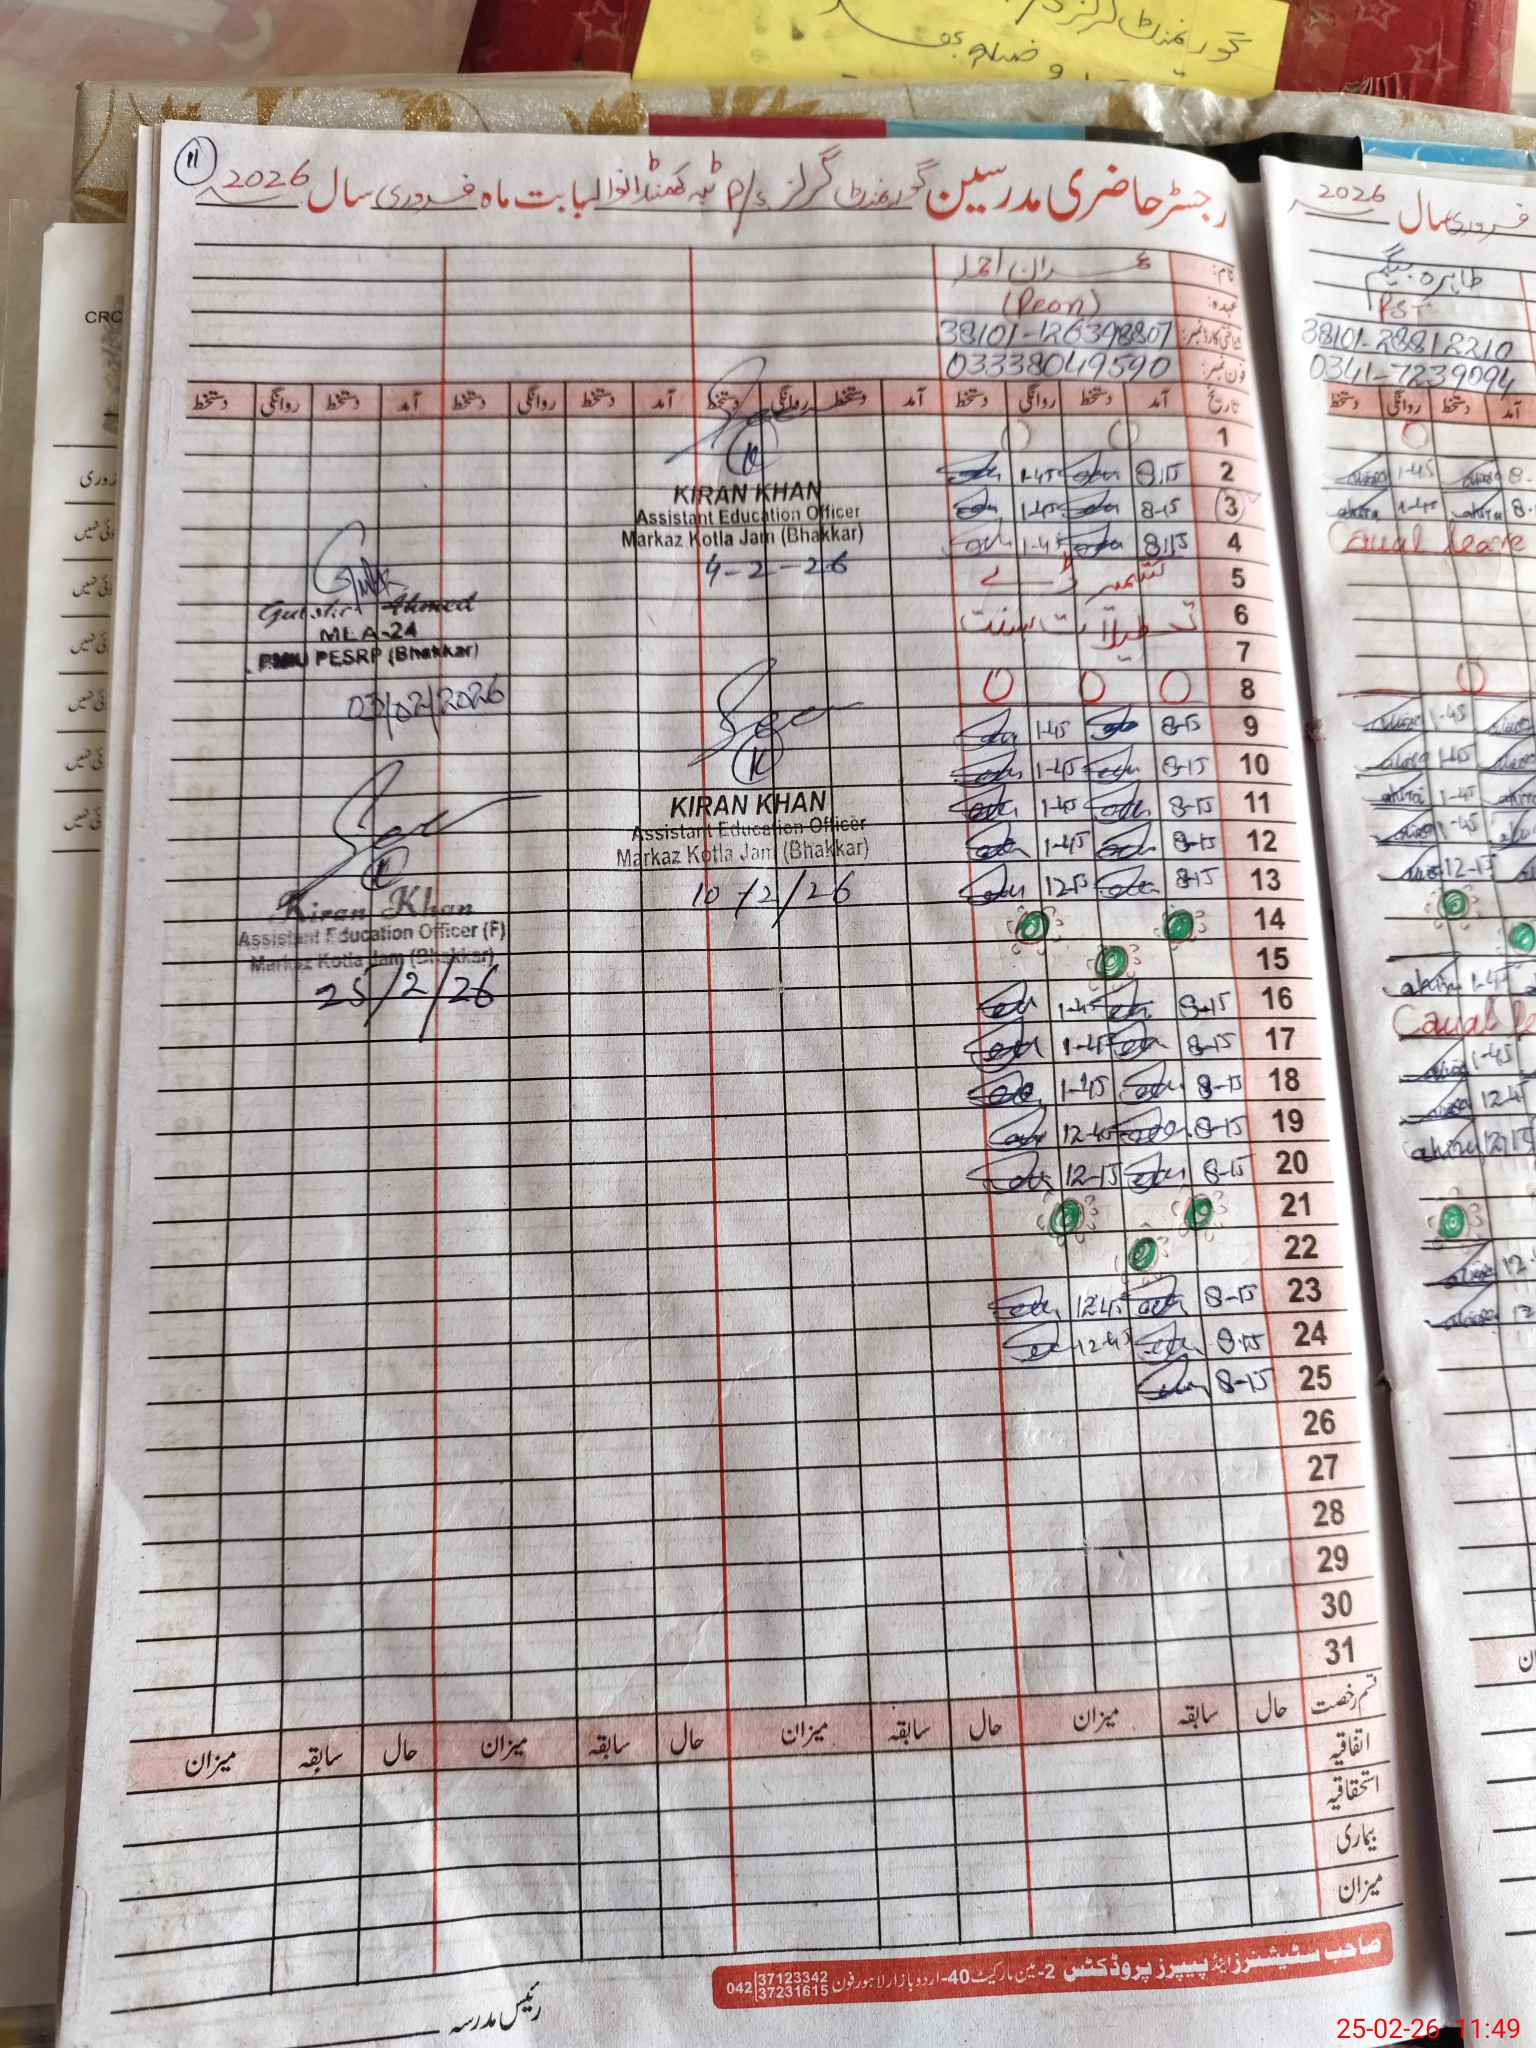 گورنمنٹ گرلز
11
رجسٹر حاضری مدرسین گورنمنٹ گرلز P/s ٹبہ کھنڈانوالہ بابت ماہ فروری سال 2026
نام: عمران احمد
عہدہ: (Peon)
شناختی کارڈ نمبر: 38101-126398807
فون نمبر: 03338049590
تاریخ آمد دستخط روانگی دستخط آمد دستخط روانگی دستخط آمد دستخط روانگی دستخط آمد دستخط روانگی دستخط
1
2 8,15 1-45
3 8-15 1-45
4 8,15 1-45
5 کشمیر ڈے
6 تعطیلات سنت
7
8
9 8-15 1-45
10 8-15 1-45
11 8-15 1-45
12 8-15 1-45
13 8-15 12-15
14
15
16 8-15 1-45
17 8-15 1-45
18 8-15 1-45
19 8-15 12-45
20 8-15 12-15
21
22
23 8-15 12-45
24 8-15 12-45
25 8-15
26
27
28
29
30
31
KIRAN KHAN
Assistant Education Officer
Markaz Kotla Jam (Bhakkar)
4-2-26
KIRAN KHAN
Assistant Education Officer
Markaz Kotla Jam (Bhakkar)
10/2/26
Ahmed
MEA-24
PMIU PESRP (Bhakkar)
03/02/2026
Kiran Khan
Assistant Education Officer (F)
Markaz Kotla Jam (Bhakkar)
25/2/26
قسم رخصت حال سابقہ میزان حال سابقہ میزان حال سابقہ میزان حال سابقہ میزان
اتفاقیہ
استحقاقیہ
بیماری
میزان
صاحب سٹیشنرز اینڈ پیپرز پروڈکٹس 2-مین مارکیٹ 40-اردو بازار لاہور فون 042 37123342 37231615
رئیس مدرسہ
فروری سال 2026
طاہرہ بیگم
PST
38101-28812210
0341-7239094
آمد دستخط روانگی دستخط
1-45 8-
1-45 8-
Caual leave
1-45
1-45
1-45
1-45
12-15
1-45
Caual le
1-45
12-45
12,15
12-
12
CRC
25-02-26 11:49